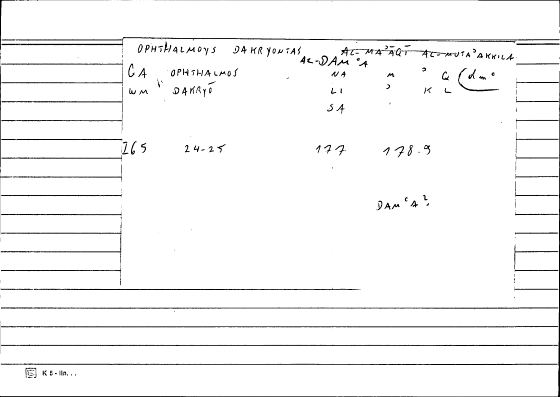 OPHTHALMOYS DAKRYONTAS AL-MAʾĀQĪ AL-MUTAʾAKKILA
AL-DAMʿA
GA OPHTHALMOS NA M ʾ Q (dmʿ
WM DAKRYŌ LI ʾ K L
SA
265 24-25 177 178.9
DAMʿA?
K 8 - lin...